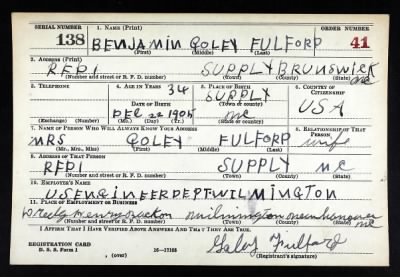 SERIAL NUMBER 1. NAME (Print) ORDER NUMBER
138 BENJAMIN GOLEY FULFORD 41
(First) (Middle) (Last)
2. ADDRESS (Print)
RFD1 SUPPLY BRUNSWICK NC
(Number and street or R. F. D. number) (Town) (County) (State)
3. TELEPHONE 4. AGE IN YEARS 5. PLACE OF BIRTH 6. COUNTRY OF CITIZENSHIP
34 SUPPLY
(Town or county)
DATE OF BIRTH
DEC 22 1905 NC USA
(Exchange) (Number) (Mo.) (Day) (Yr.) (State or country)
7. NAME OF PERSON WHO WILL ALWAYS KNOW YOUR ADDRESS 8. RELATIONSHIP OF THAT PERSON
MRS GOLEY FULFORD wife
(Mr., Mrs., Miss) (First) (Middle) (Last)
9. ADDRESS OF THAT PERSON
RFD1 SUPPLY NC
(Number and street or R. F. D. number) (Town) (County) (State)
10. EMPLOYER'S NAME
U S ENGINEER DEPT WILMINGTON
11. PLACE OF EMPLOYMENT OR BUSINESS
newhanover NC
(Number and street or R. F. D. number) (Town) (County) (State)
I AFFIRM THAT I HAVE VERIFIED ABOVE ANSWERS AND THAT THEY ARE TRUE.
REGISTRATION CARD
D. S. S. Form 1 (over) 16—17105 Goley Fulford
(Registrant's signature)